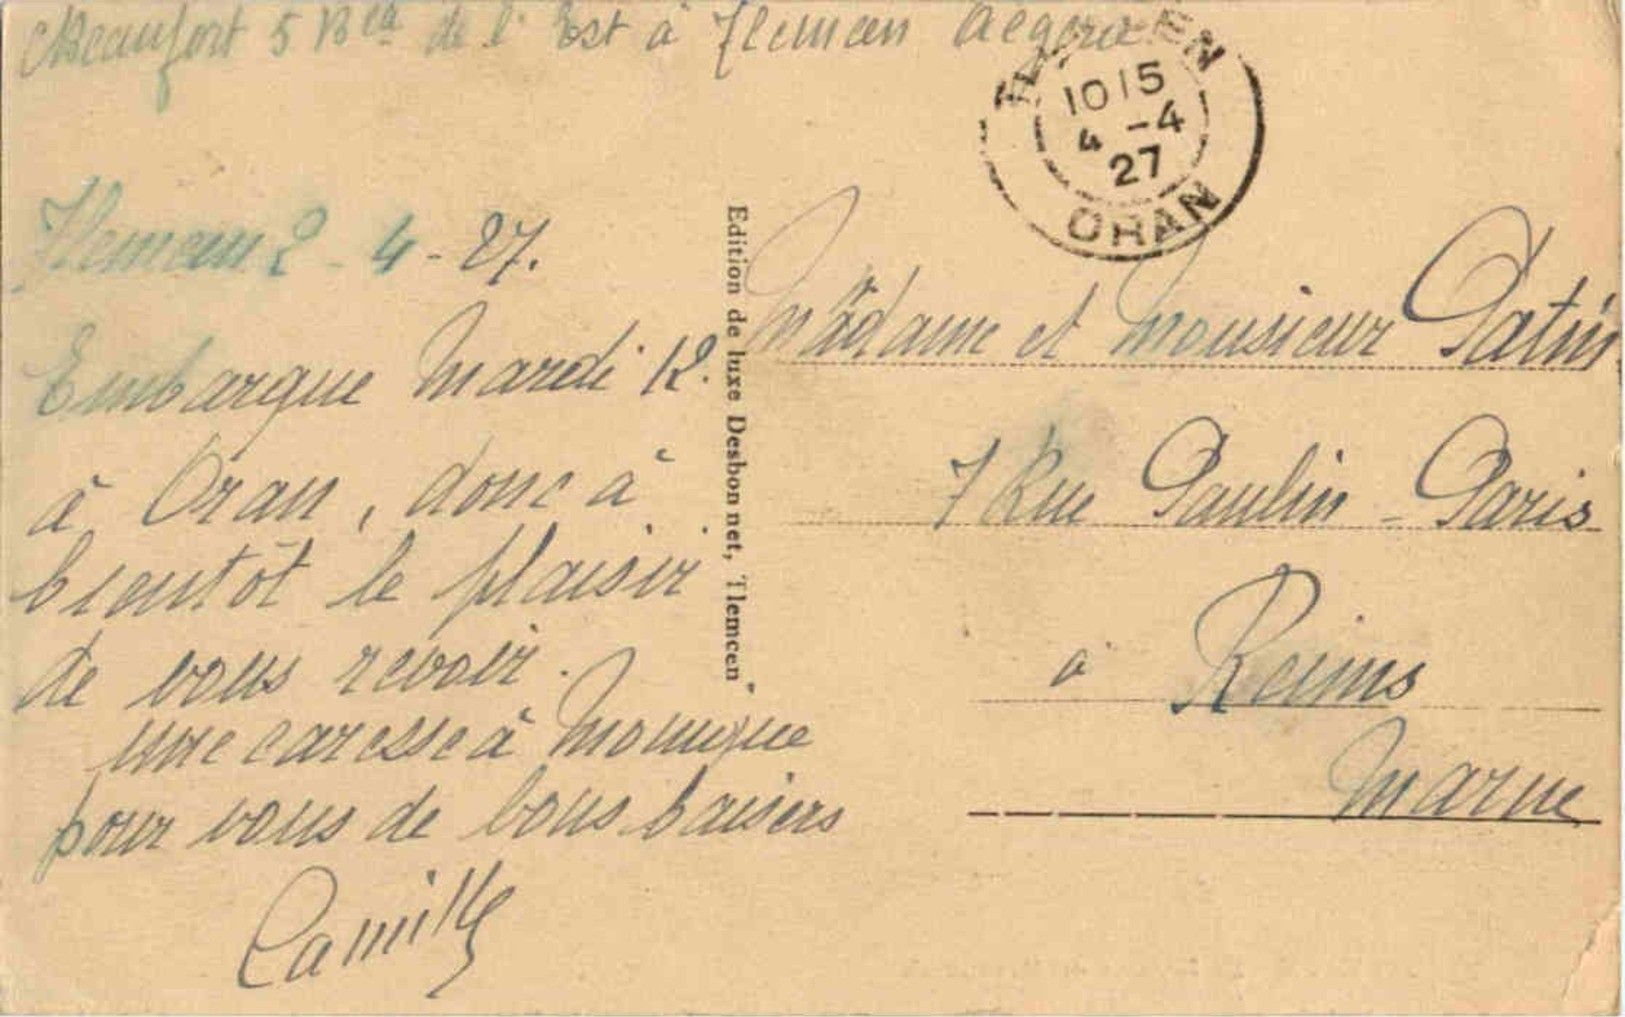 Beaufort 5 Bd de l'Est à Tlemcen Algérie
TLEMCEN
1015
4 -4
27
ORAN
Tlemcen 2-4-27.
Embarque Mardi 12.
à Oran, donc à
bientôt le plaisir
de vous revoir.
une caresse à Monique
pour vous de bons baisers
Camille
Edition de luxe Desbonnet, Tlemcen
Madame et Monsieur Patin
7 Rue Paulin-Paris
à Reims
Marne